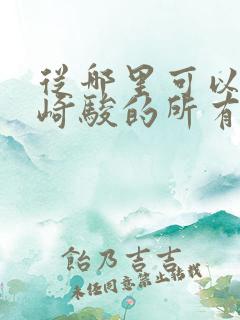 從哪里可以
崎駿的所有
飴乃吉吉
未任同意禁止転載